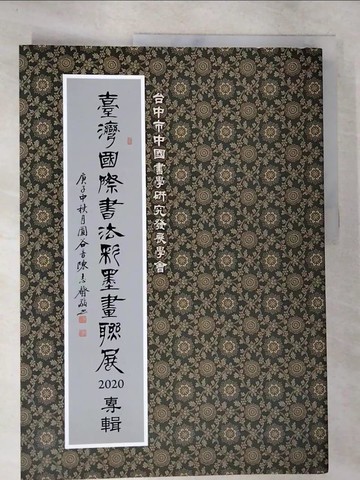 台中市中國書學研究發展學會
臺灣國際書法彩墨畫聯展
2020
專輯
庚子中秋月圓谷音陳志齊